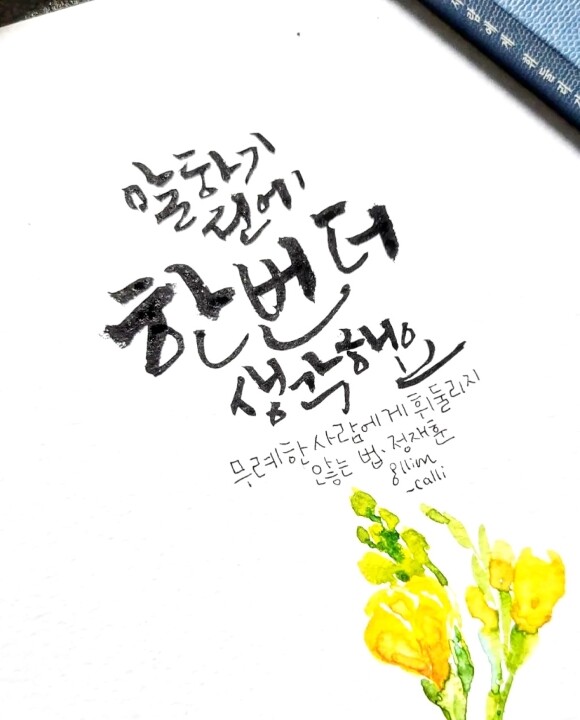 말하기
전에
한번 더
생각해요
무례한 사람에게 휘둘리지
않는 법·정재훈
ollim
-calli
사람에게 휘둘리지